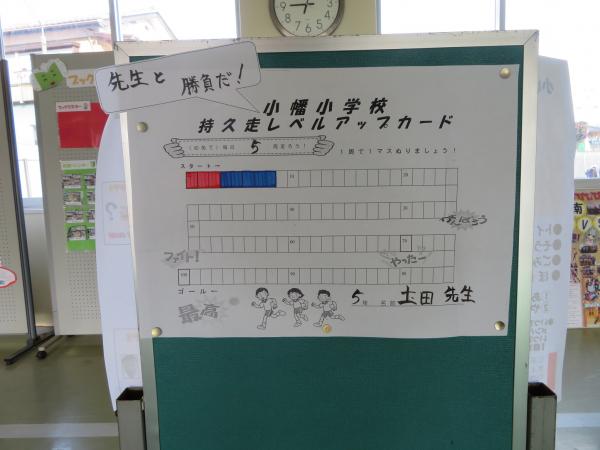 先生と
勝負だ!
小幡小学校
持久走レベルアップカード
(めあて)毎日 5 周走ろう!
1周で1マスぬりましょう!
スタート~
10
20
がんばろう
ファイト!
やったー
100
ゴール~
最高
5年 名前 土田 先生